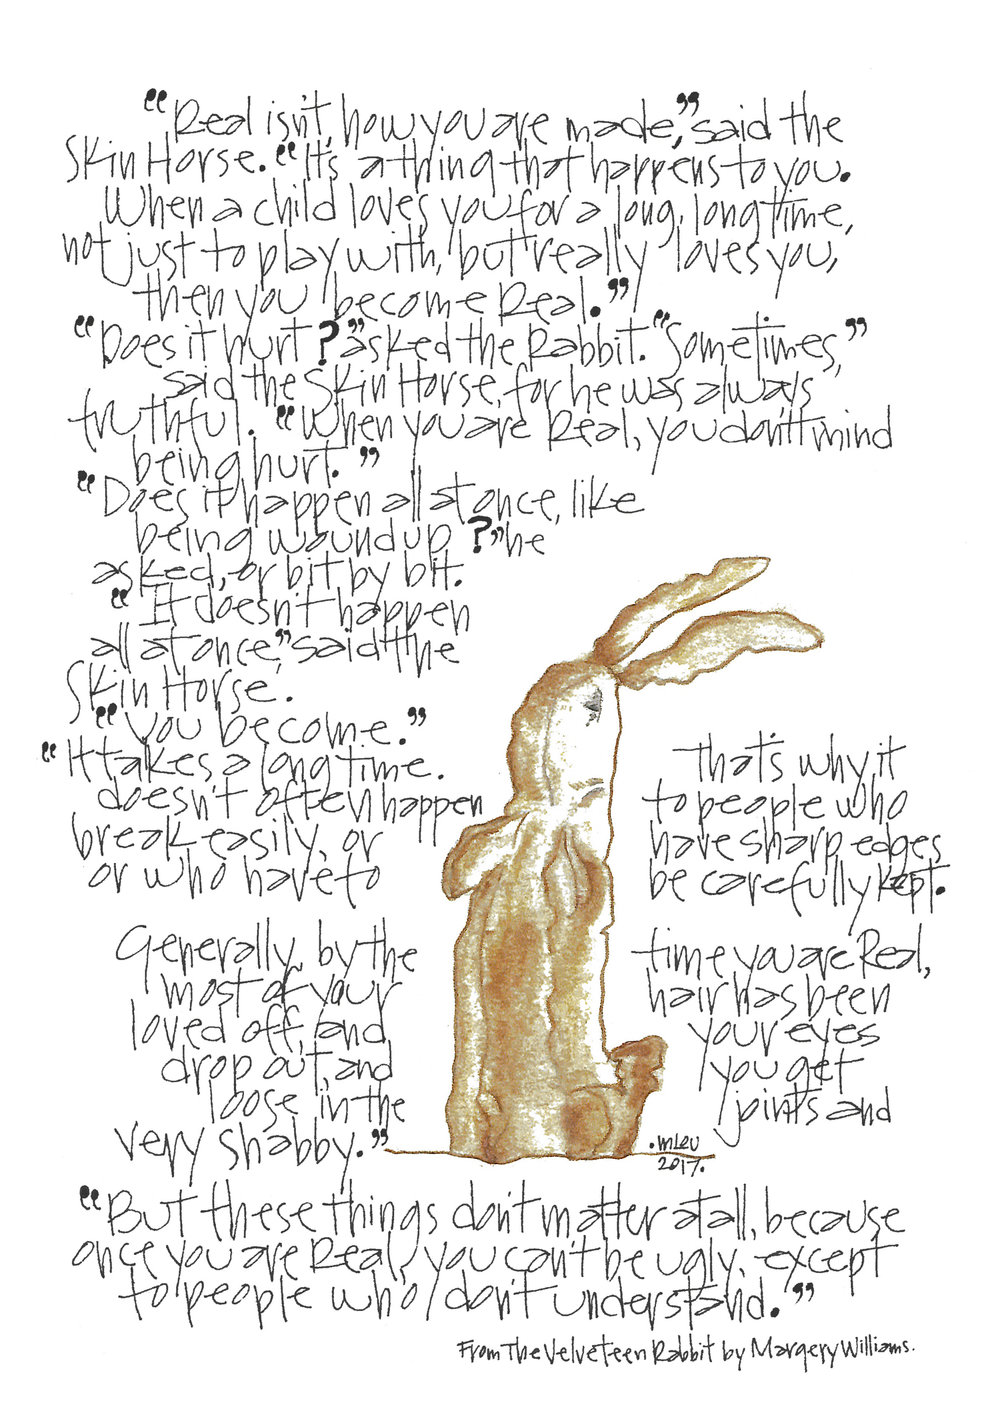 "Real isn't how you are made," said the
Skin Horse. "It's a thing that happens to you.
When a child loves you for a long, long time,
not just to play with, but really loves you,
then you become Real."
"Does it hurt?" asked the Rabbit. "Sometimes,"
said the Skin Horse, for he was always
truthful. "When you are Real, you don't mind
being hurt."
"Does it happen all at once, like
being wound up?" he
asked, or bit by bit.
"It doesn't happen
all at once," said the
Skin Horse.
"You become."
"It takes a long time. That's why it
doesn't often happen to people who
break easily, or have sharp edges
or who have to be carefully kept.
Generally, by the time you are Real,
most of your hair has been
loved off, and your eyes
drop out, and you get
loose in the joints and
very shabby."
.MLEU
2017.
"But these things don't matter at all, because
once you are Real, you can't be ugly, except
to people who don't understand."
From The Velveteen Rabbit by Margery Williams.